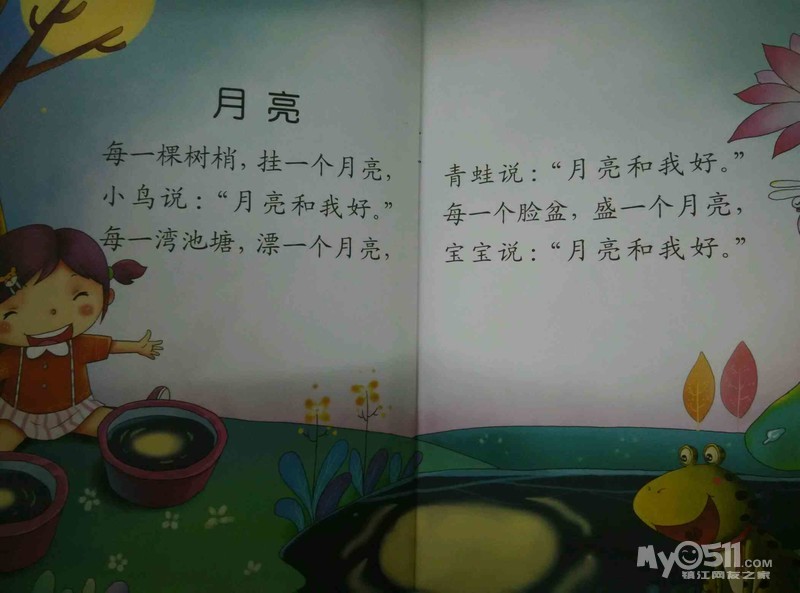 月亮
每一棵树梢，挂一个月亮，
小鸟说：“月亮和我好。”
每一湾池塘，漂一个月亮，
青蛙说：“月亮和我好。”
每一个脸盆，盛一个月亮，
宝宝说：“月亮和我好。”
My0511.com
镇江网友之家